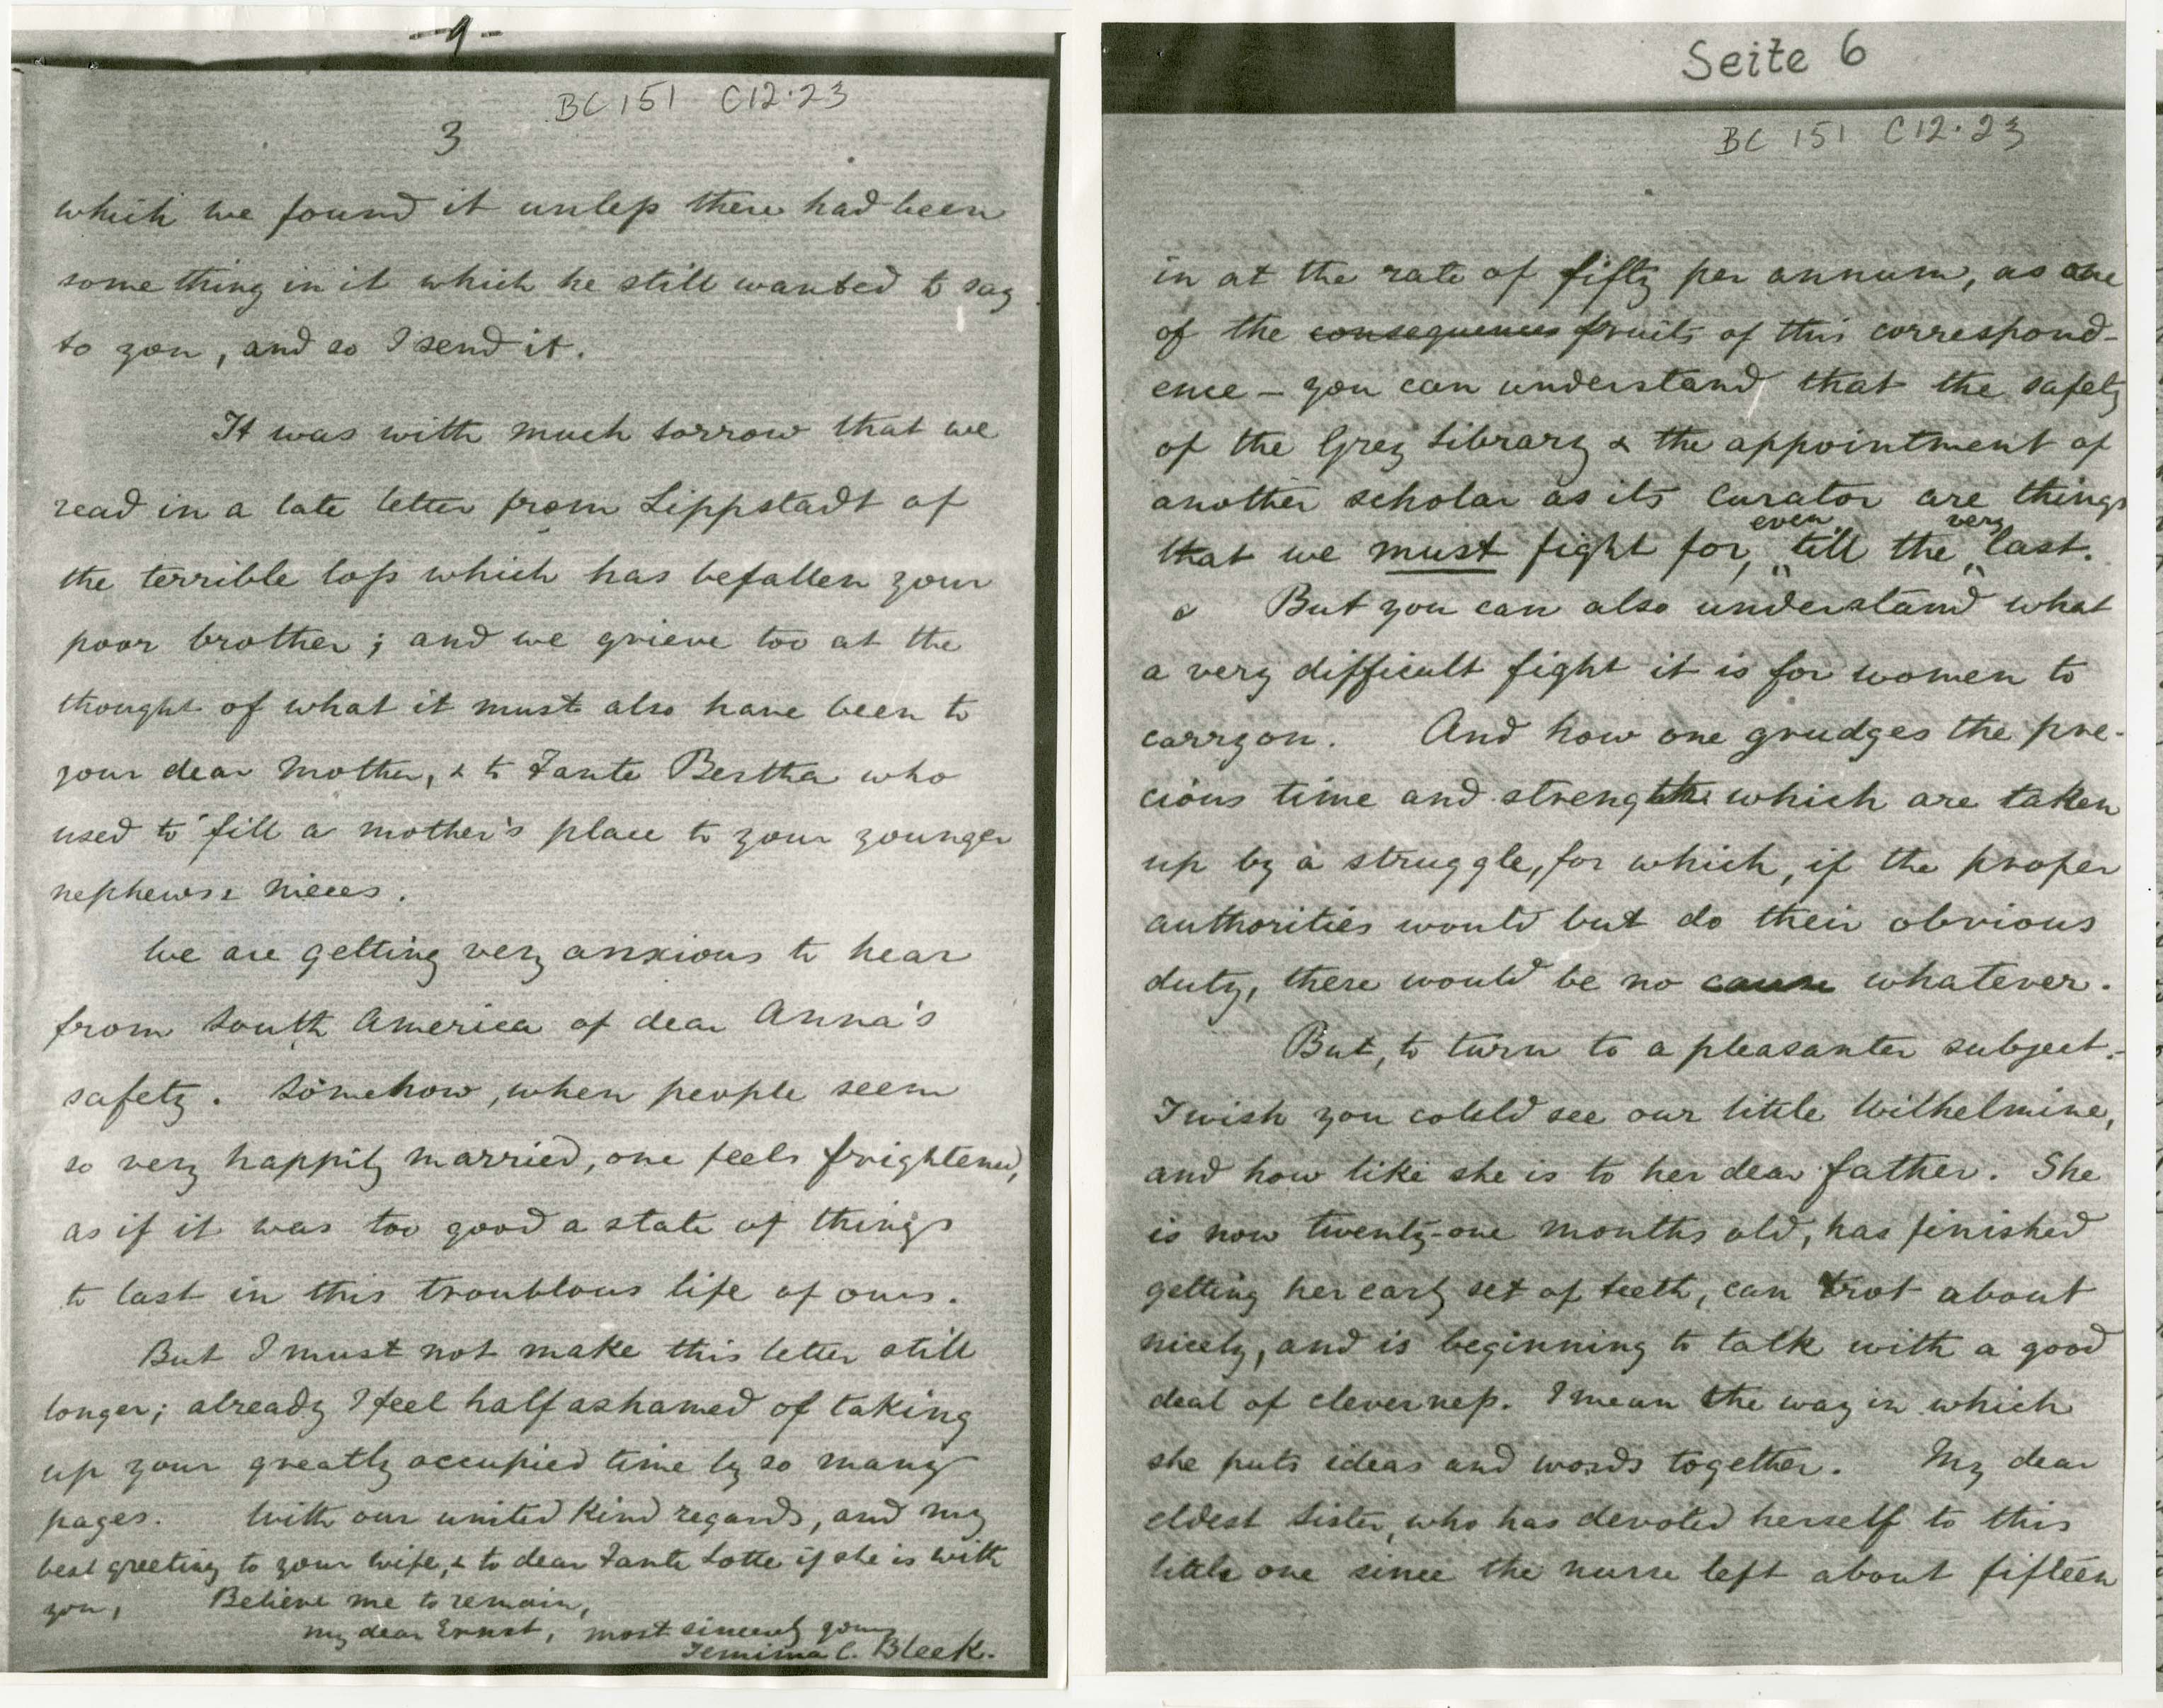 - 9 -
BC 151 C12.23
3
which we found it unless there had been
some thing in it which he still wanted to say
to you, and so I send it.
It was with much sorrow that we
read in a late letter from Lippstadt of
the terrible loss which has befallen your
poor brother; and we grieve too at the
thought of what it must also have been to
your dear Mother, & to Tante Bertha who
used to fill a mother's place to your younger
nephews & nieces.
We are getting very anxious to hear
from South America of dear Anna's
safety. Somehow, when people seem
so very happily married, one feels frightened,
as if it was too good a state of things
to last in this troublous life of ours.
But I must not make this letter still
longer; already I feel half ashamed of taking
up your greatly occupied time by so many
pages. With our united kind regards, and my
best greeting to your wife, & to dear Tante Lotte if she is with
you, Believe me to remain,
my dear Ernst, most sincerely yours
Jemima C. Bleek.
Seite 6
BC 151 C12.23
in at the rate of fifty per annum, as one
of the consequences fruits of this correspond-
ence – you can understand that the safety
of the Grey Library & the appointment of
another scholar as its Curator are things
that we must fight for, even till the very last.
But you can also understand what
a very difficult fight it is for women to
carry on. And how one grudges the pre-
cious time and strength which are taken
up by a struggle, for which, if the proper
authorities would but do their obvious
duty, there would be no cause whatever.
But, to turn to a pleasanter subject.–
I wish you could see our little Wilhelmine,
and how like she is to her dear father. She
is now twenty-one months old, has finished
getting her early set of teeth, can trot about
nicely, and is beginning to talk with a good
deal of cleverness. I mean the way in which
she puts ideas and words together. My dear
eldest sister, who has devoted herself to this
little one since the nurse left about fifteen